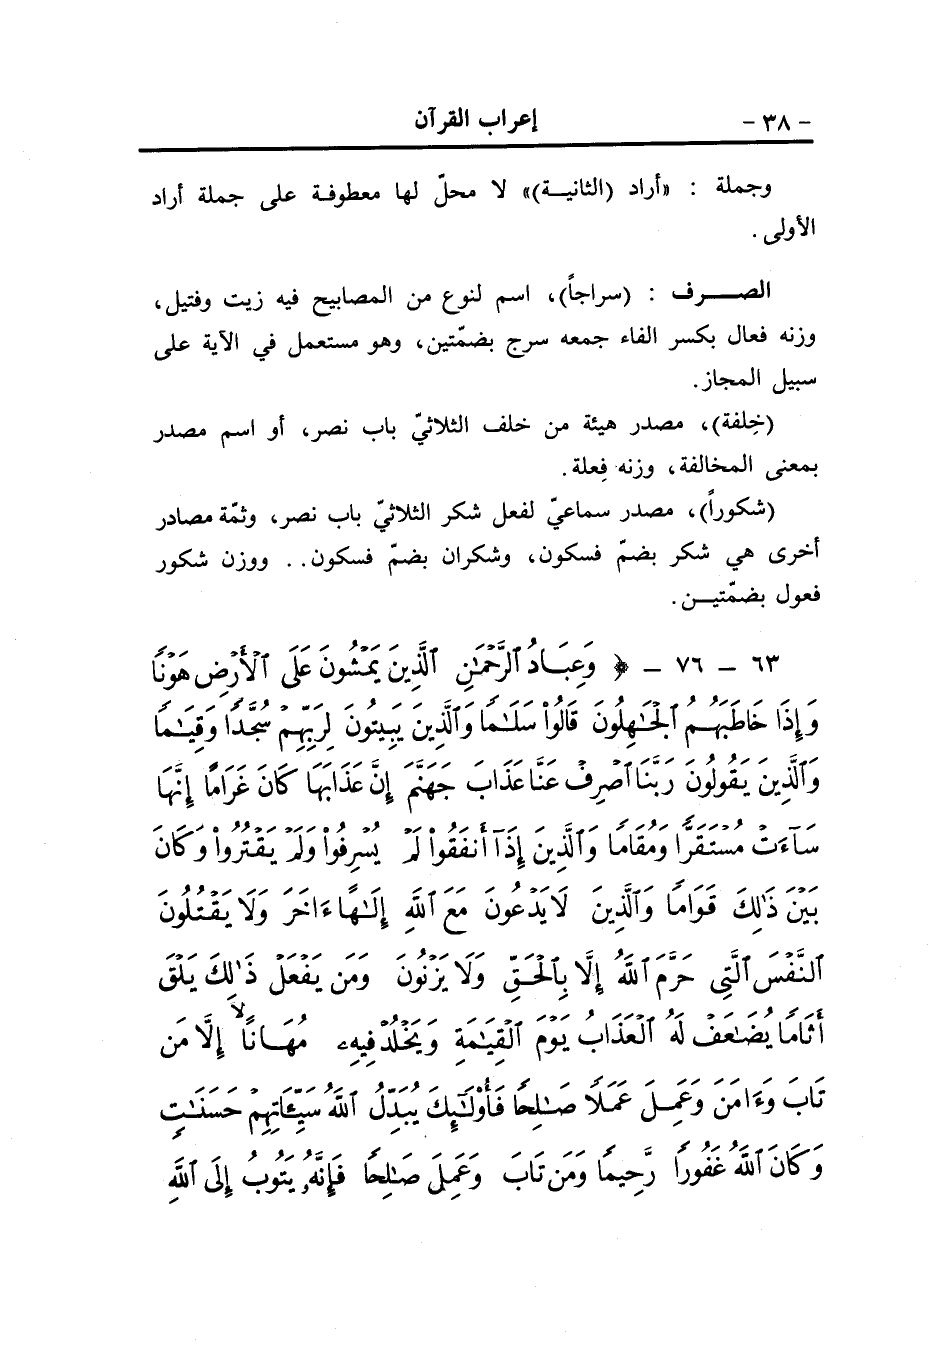 - ٣٨ - إعراب القرآن
وجملة : «أراد (الثانيـة)» لا محلّ لها معطوفة على جملة أراد
الأولى .
الصـــرف : (سراجاً)، اسم لنوع من المصابيح فيه زيت وفتيل،
وزنه فعال بكسر الفاء جمعه سرج بضمّتين، وهو مستعمل في الآية على
سبيل المجاز.
(خِلفة)، مصدر هيئة من خلف الثلاثيّ باب نصر، أو اسم مصدر
بمعنى المخالفة، وزنه فِعلة.
(شكوراً)، مصدر سماعيّ لفعل شكر الثلاثيّ باب نصر، وثمّة مصادر
أخرى هي شكر بضمّ فسكون، وشكران بضمّ فسكون. . ووزن شكور
فعول بضمّتيـن.
٦٣ - ٧٦ - ﴿ وَعِبَادُ ٱلرَّحْمَٰنِ ٱلَّذِينَ يَمْشُونَ عَلَى ٱلْأَرْضِ هَوْنًا
وَإِذَا خَاطَبَهُمُ ٱلْجَٰهِلُونَ قَالُوا۟ سَلَٰمًا وَٱلَّذِينَ يَبِيتُونَ لِرَبِّهِمْ سُجَّدًا وَقِيَٰمًا
وَٱلَّذِينَ يَقُولُونَ رَبَّنَا ٱصْرِفْ عَنَّا عَذَابَ جَهَنَّمَ إِنَّ عَذَابَهَا كَانَ غَرَامًا إِنَّهَا
سَآءَتْ مُسْتَقَرًّا وَمُقَامًا وَٱلَّذِينَ إِذَآ أَنفَقُوا۟ لَمْ يُسْرِفُوا۟ وَلَمْ يَقْتُرُوا۟ وَكَانَ
بَيْنَ ذَٰلِكَ قَوَامًا وَٱلَّذِينَ لَا يَدْعُونَ مَعَ ٱللَّهِ إِلَٰهًا ءَاخَرَ وَلَا يَقْتُلُونَ
ٱلنَّفْسَ ٱلَّتِى حَرَّمَ ٱللَّهُ إِلَّا بِٱلْحَقِّ وَلَا يَزْنُونَ وَمَن يَفْعَلْ ذَٰلِكَ يَلْقَ
أَثَامًا يُضَٰعَفْ لَهُ ٱلْعَذَابُ يَوْمَ ٱلْقِيَٰمَةِ وَيَخْلُدْ فِيهِۦ مُهَانًا إِلَّا مَن
تَابَ وَءَامَنَ وَعَمِلَ عَمَلًا صَٰلِحًا فَأُو۟لَٰٓئِكَ يُبَدِّلُ ٱللَّهُ سَيِّـَٔاتِهِمْ حَسَنَٰتٍ
وَكَانَ ٱللَّهُ غَفُورًا رَّحِيمًا وَمَن تَابَ وَعَمِلَ صَٰلِحًا فَإِنَّهُۥ يَتُوبُ إِلَى ٱللَّهِ